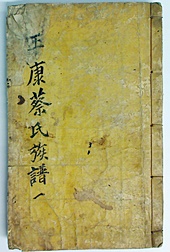 王康蔡氏族譜一